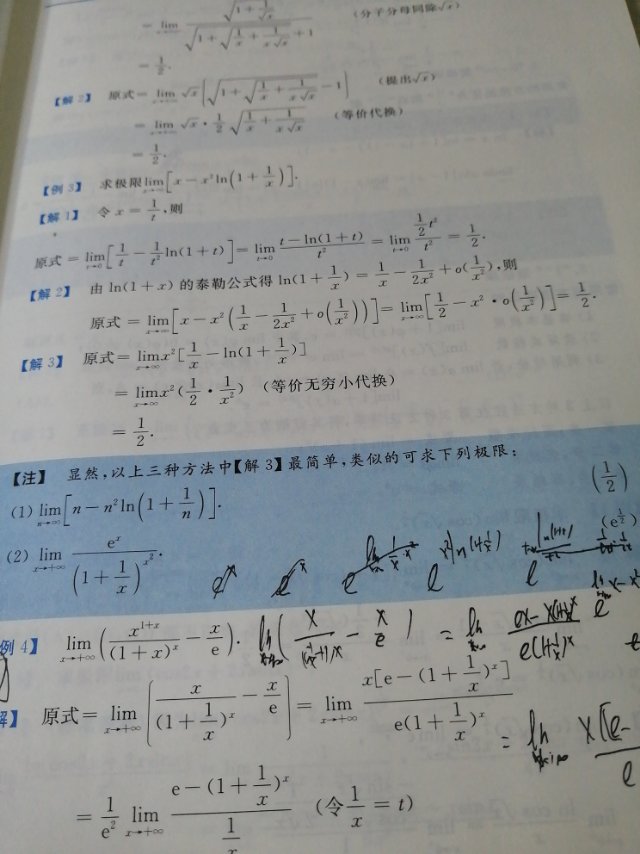 = lim √(1+1/√x) / (√(1+√(1/x)+1/(x√x))+1) (分子分母同除√x)
= 1/2.
【解2】 原式 = lim_{x→+∞} √x [√(1+√(1/x+1/(x√x)))−1] (提出√x)
= lim_{x→+∞} √x · 1/2 √(1/x+1/(x√x)) (等价代换)
= 1/2.
【例3】 求极限lim_{x→∞}[x−x²ln(1+1/x)].
【解1】 令 x = 1/t,则
原式 = lim_{t→0}[1/t − 1/t² ln(1+t)] = lim_{t→0} (t−ln(1+t))/t² = lim_{t→0} (1/2 t²)/t² = 1/2.
【解2】 由 ln(1+x) 的泰勒公式得 ln(1+1/x) = 1/x − 1/(2x²) + o(1/x²),则
原式 = lim_{x→∞}[x−x²(1/x − 1/(2x²) + o(1/x²))] = lim_{x→∞}[1/2 − x²·o(1/x²)] = 1/2.
【解3】 原式 = lim_{x→∞}x²[1/x − ln(1+1/x)]
= lim_{x→∞}x²(1/2 · 1/x²) (等价无穷小代换)
= 1/2.
【注】 显然,以上三种方法中【解3】最简单,类似的可求下列极限:
(1) lim_{n→∞}[n−n²ln(1+1/n)]. (1/2)
(2) lim_{x→+∞} e^x/(1+1/x)^{x²}. (e^{1/2})
例4】 lim_{x→+∞}(x^{1+x}/(1+x)^x − x/e).
解】 原式 = lim_{x→+∞}[x/(1+1/x)^x − x/e] = lim_{x→+∞} x[e−(1+1/x)^x]/(e(1+1/x)^x)
= 1/e² lim_{x→+∞} (e−(1+1/x)^x)/(1/x) (令1/x = t)